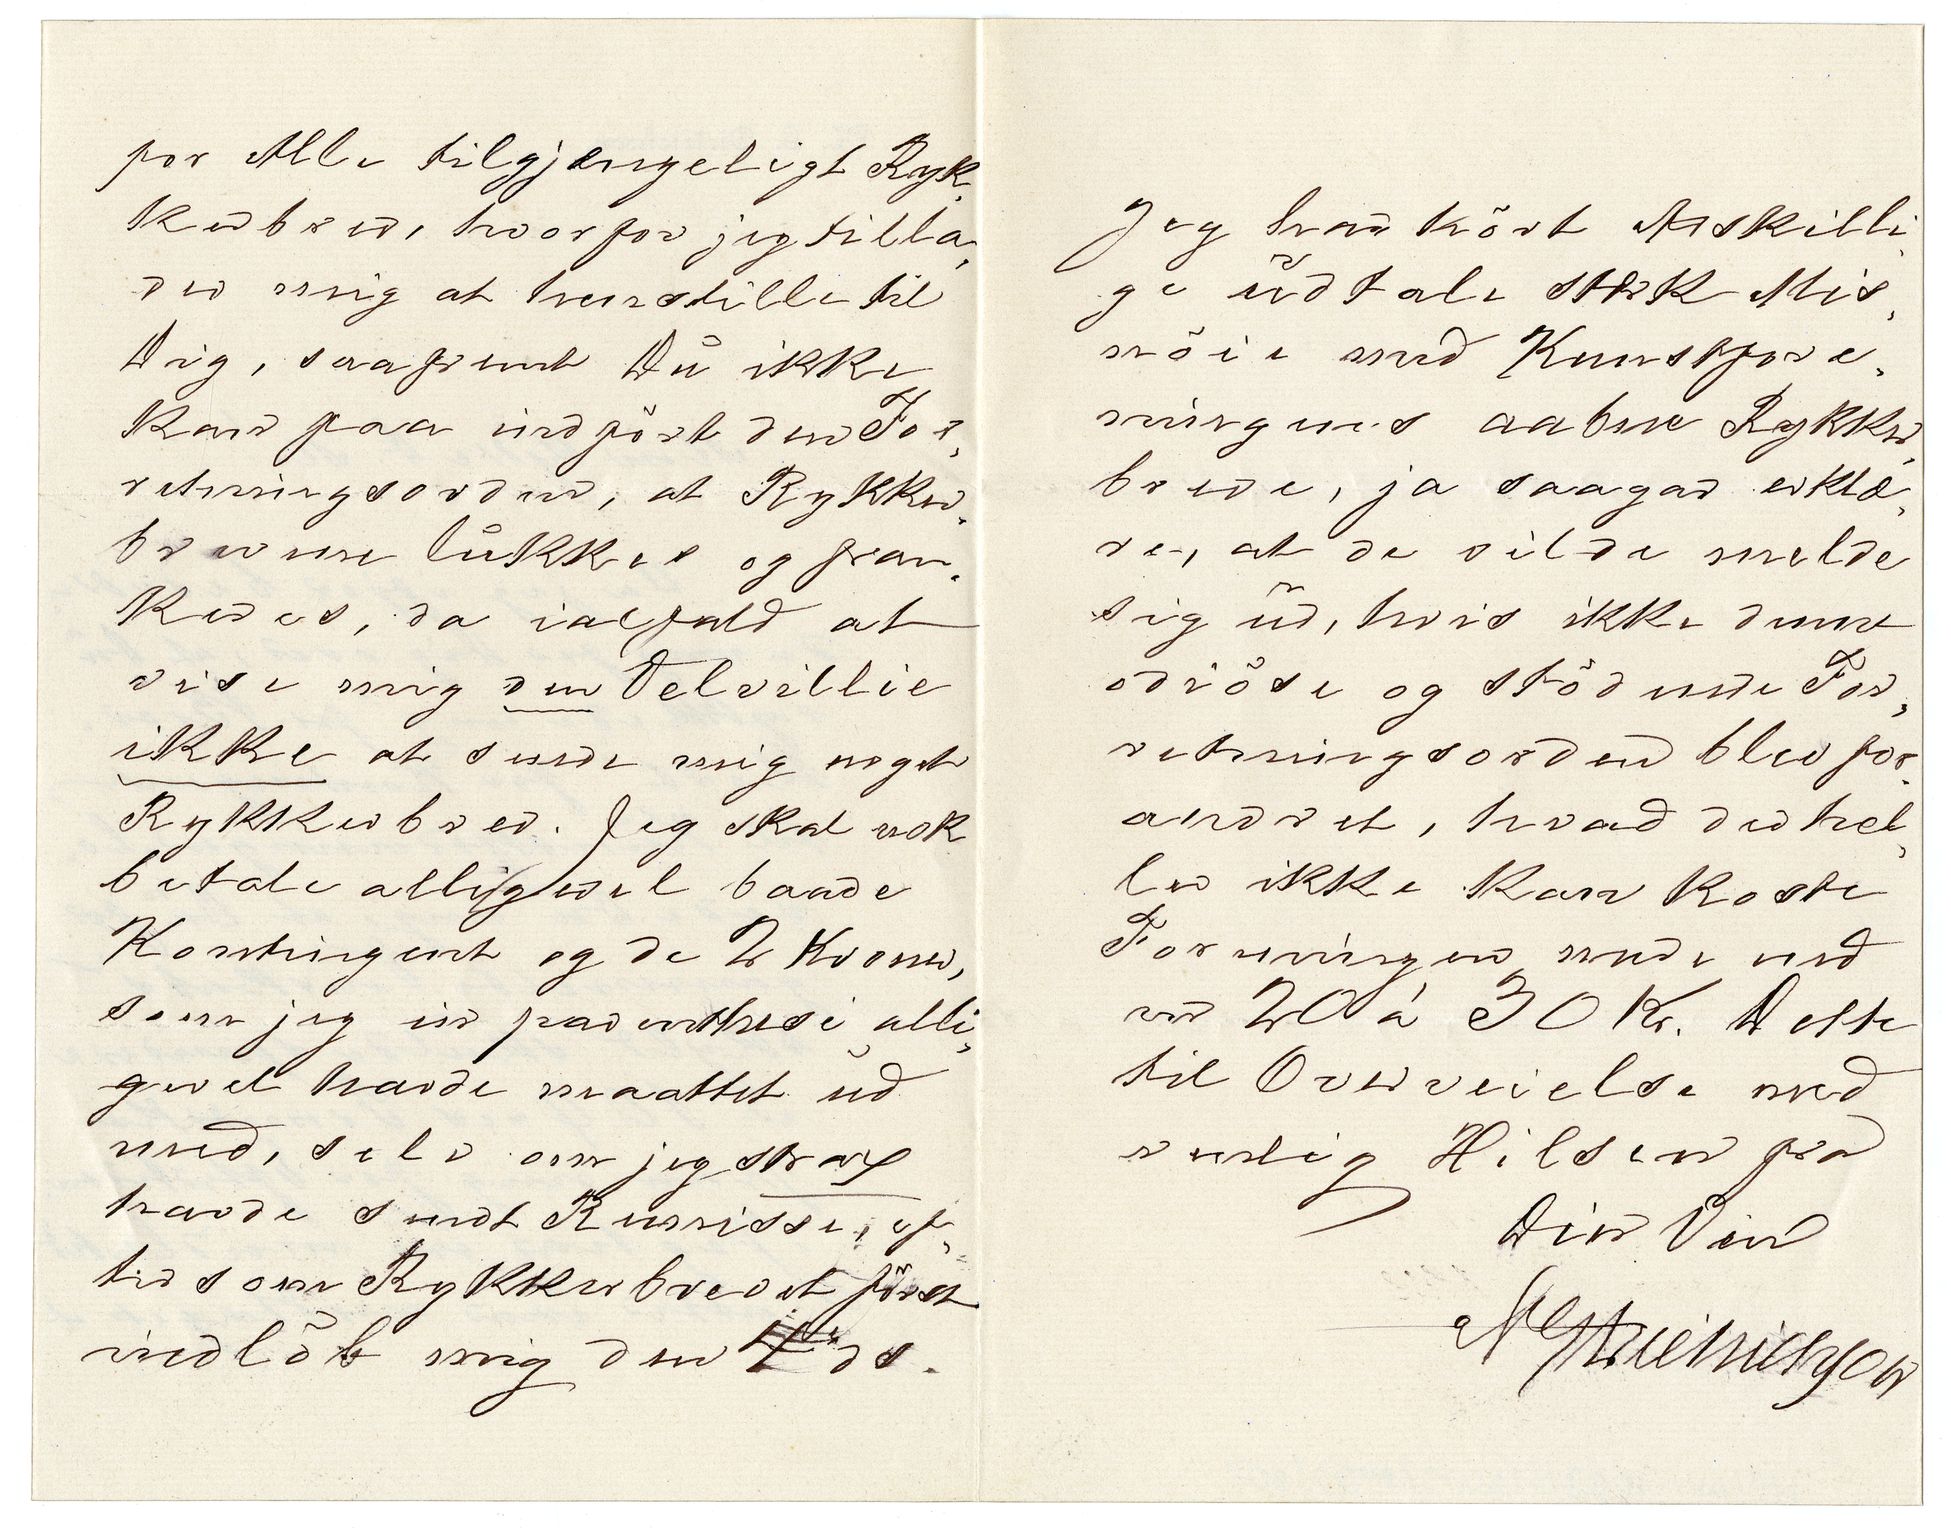 for Alle tilgjængeligt Ryk-
kerbrev, hvorfor jeg tilla-
der mig at henstille til
Dig, saafremt Du ikke
kan faa indført den For-
retningsorden, at Rykker-
brevene lukkes og fran-
keres, da ialfald at
vise mig den Velvillie
ikke at sende mig noget
Rykkerbrev. Jeg skal nok
betale alligevel baade
Kontingent og de 2 Kroner,
som jeg in parenthesi alli-
gevel havde maattet ud
med, selv om jeg strax
havde sendt Remisse, ef-
tersom Rykkerbrevet først
indløb mig den ds.
Jeg har hørt Adskilli-
ge udtale stærk Mis-
nøie med Kunstfore-
ningens aabne Rykker-
breve, ja saagar erklæ-
re, at de vilde melde
sig ud, hvis ikke denne
odiøse og stødende For-
retningsorden blev for-
andret, hvad der hel-
ler ikke kan koste
Foreningen mere end
en 20 à 30 Kr. Dette
til Overveielse med
venlig Hilsen fra
Din Ven